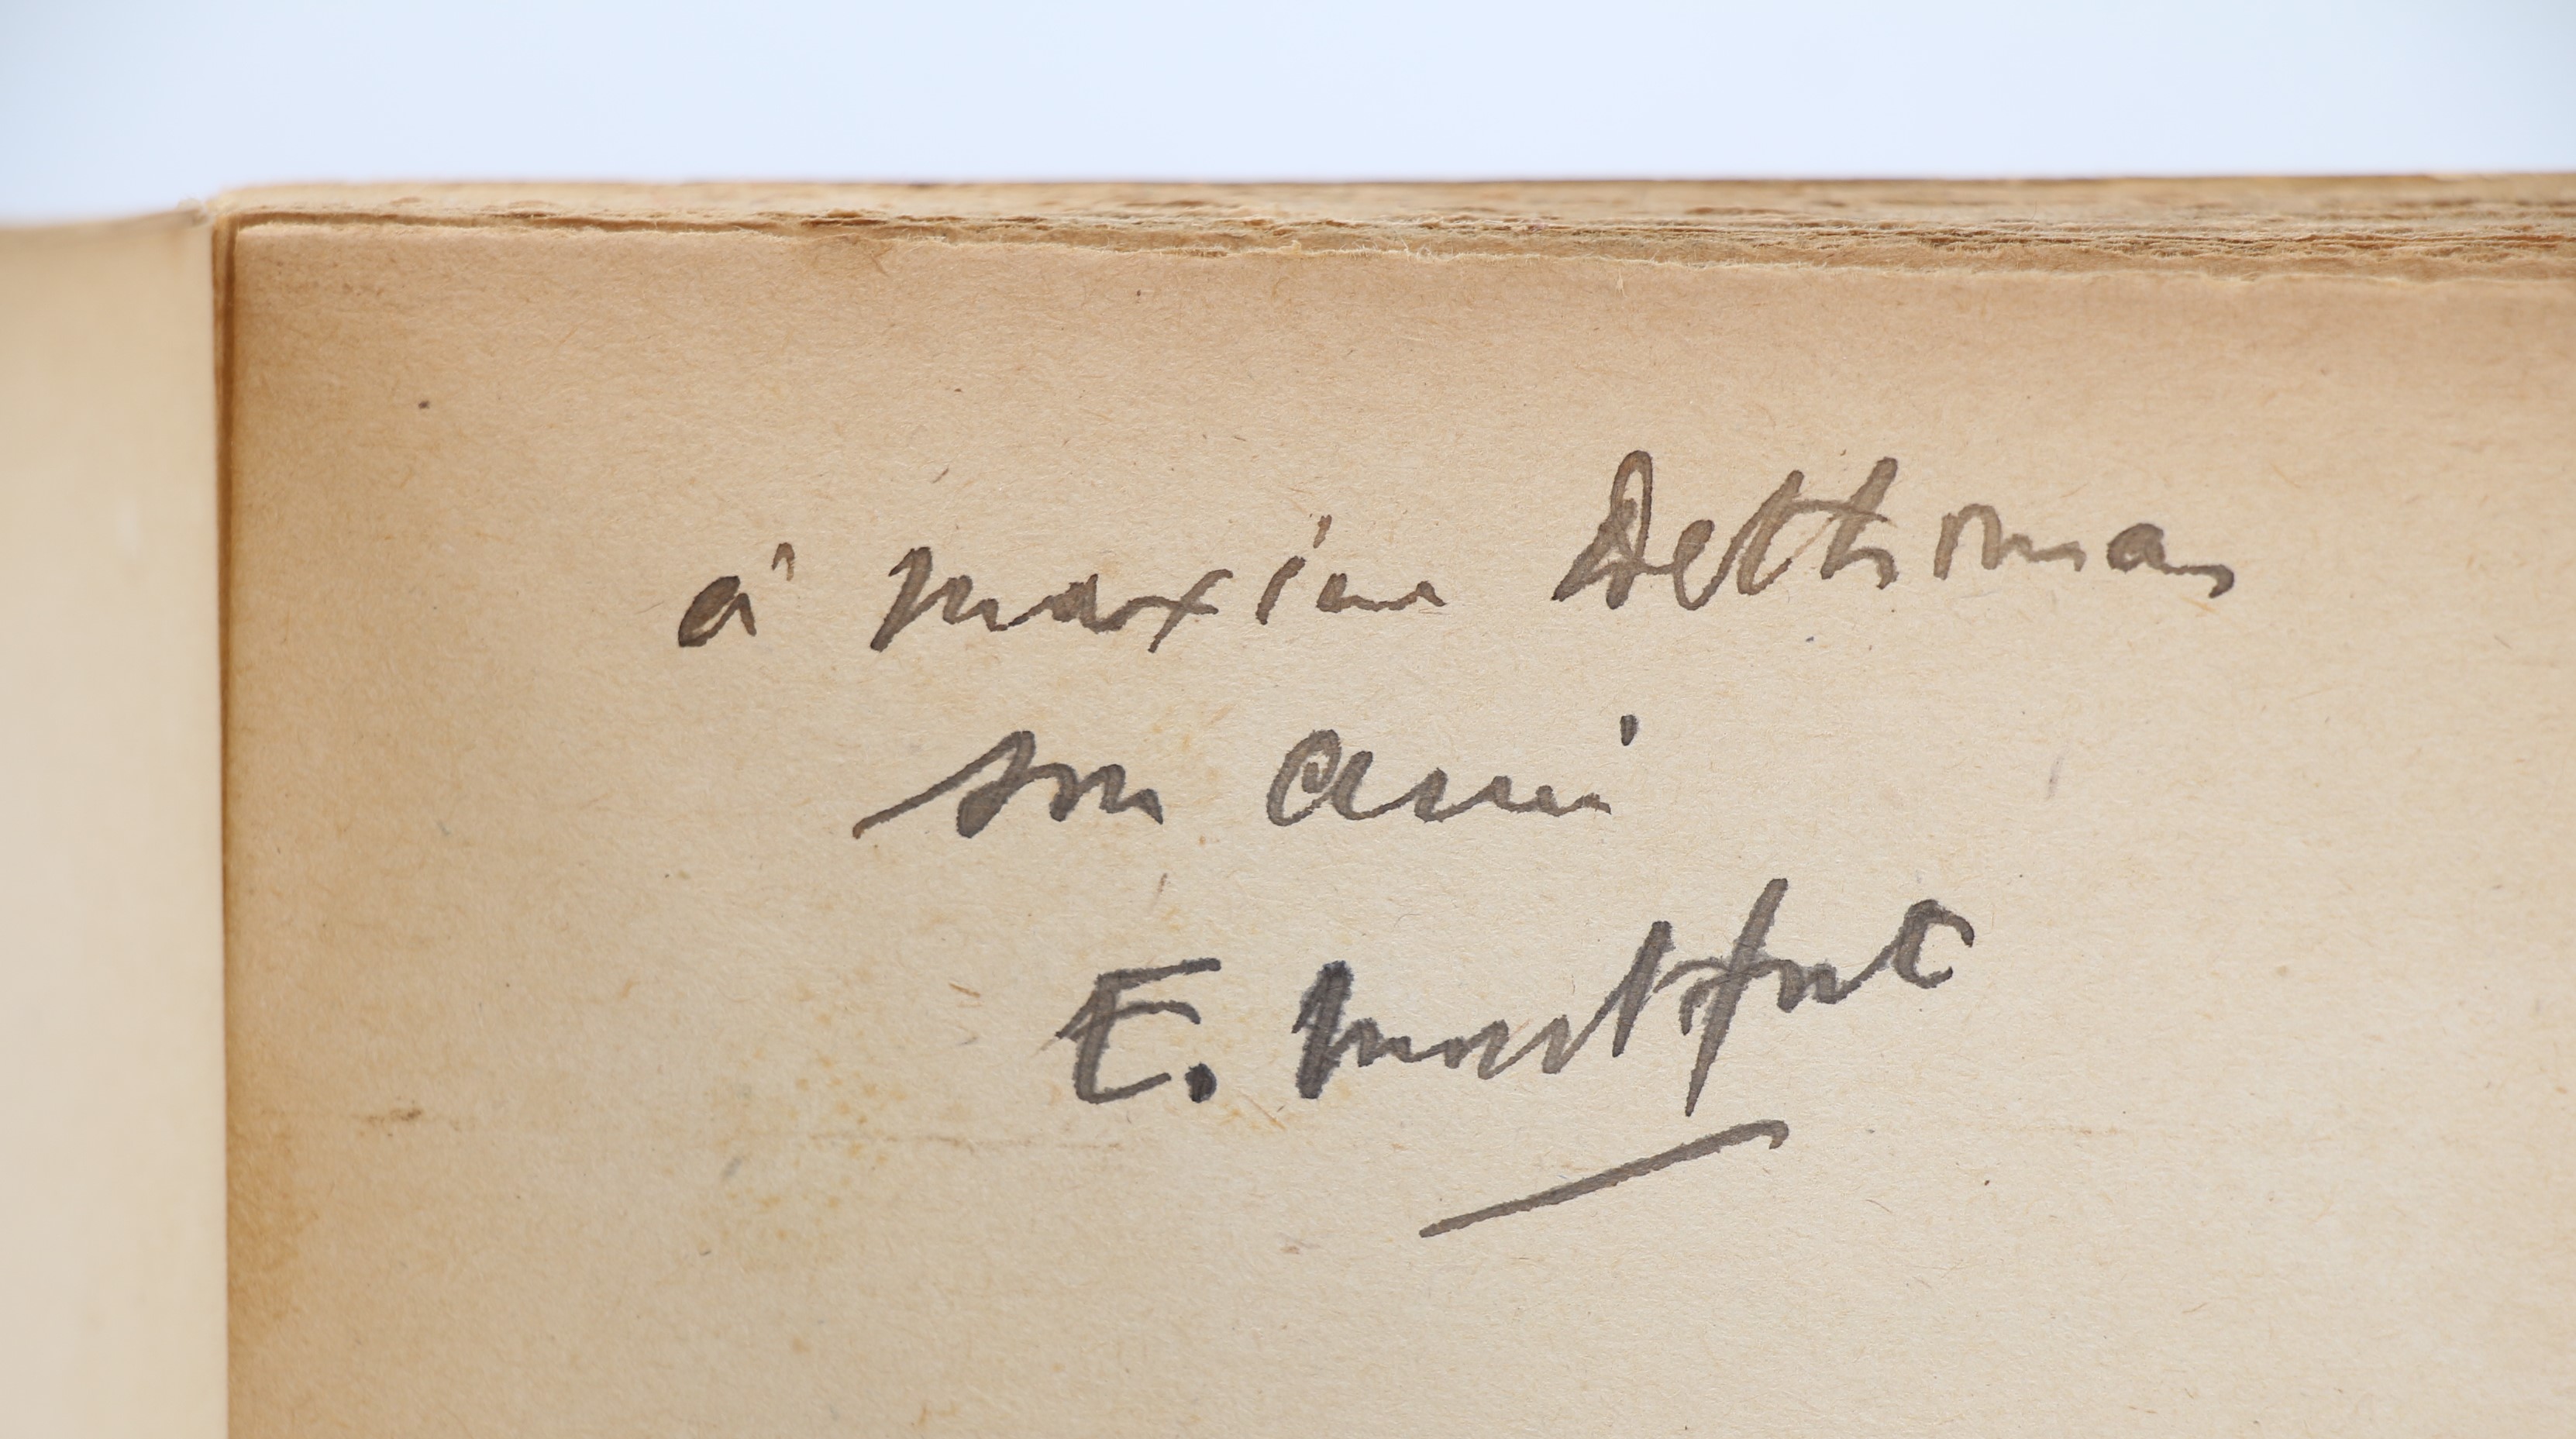 à Maxime Dethomas
son ami
E. Montfort